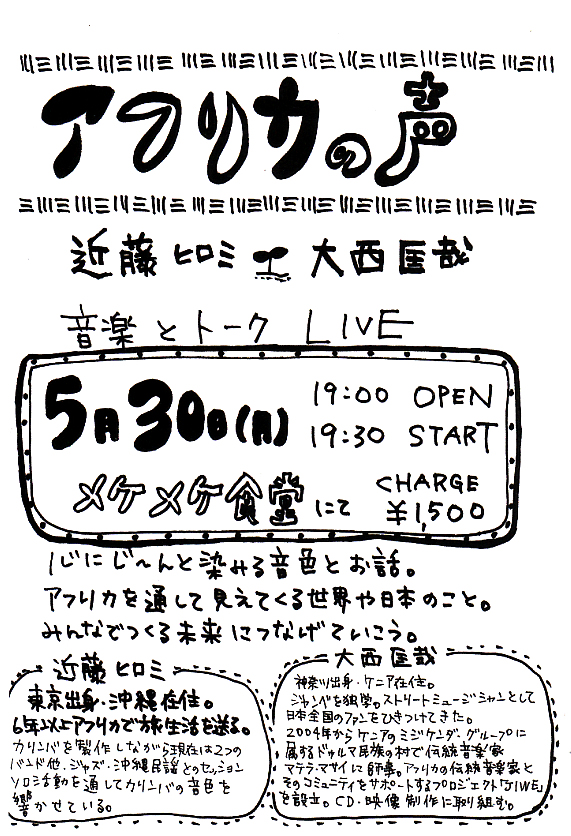 アフリカの声
近藤ヒロミ 大西匡哉
音楽とトーク LIVE
5月30日(月)
19:00 OPEN
19:30 START
メケメケ食堂にて
CHARGE
¥1,500
心にじ〜んと染みる音色とお話。
アフリカを通して見えてくる世界や日本のこと。
みんなでつくる未来につなげていこう。
近藤ヒロミ
東京出身・沖縄在住。
6年以上アフリカで旅生活を送る。
カリンバを製作しながら現在は2つの
バンド他、ジャズ・沖縄民謡とのセッション
ソロ活動を通してカリンバの音色を
響かせている。
大西匡哉
神奈川出身・ケニア在住。
ジャンベを独学。ストリートミュージシャンとして
日本全国のファンをひきつけてきた。
2004年からケニアのミジケンダ・グループに
属するドゥルマ民族の村で伝統音楽家
マテラ・マサイに師事。アフリカの伝統音楽家と
そのコミュニティをサポートするプロジェクト「JIWE」
を設立。CD・映像制作に取り組む。